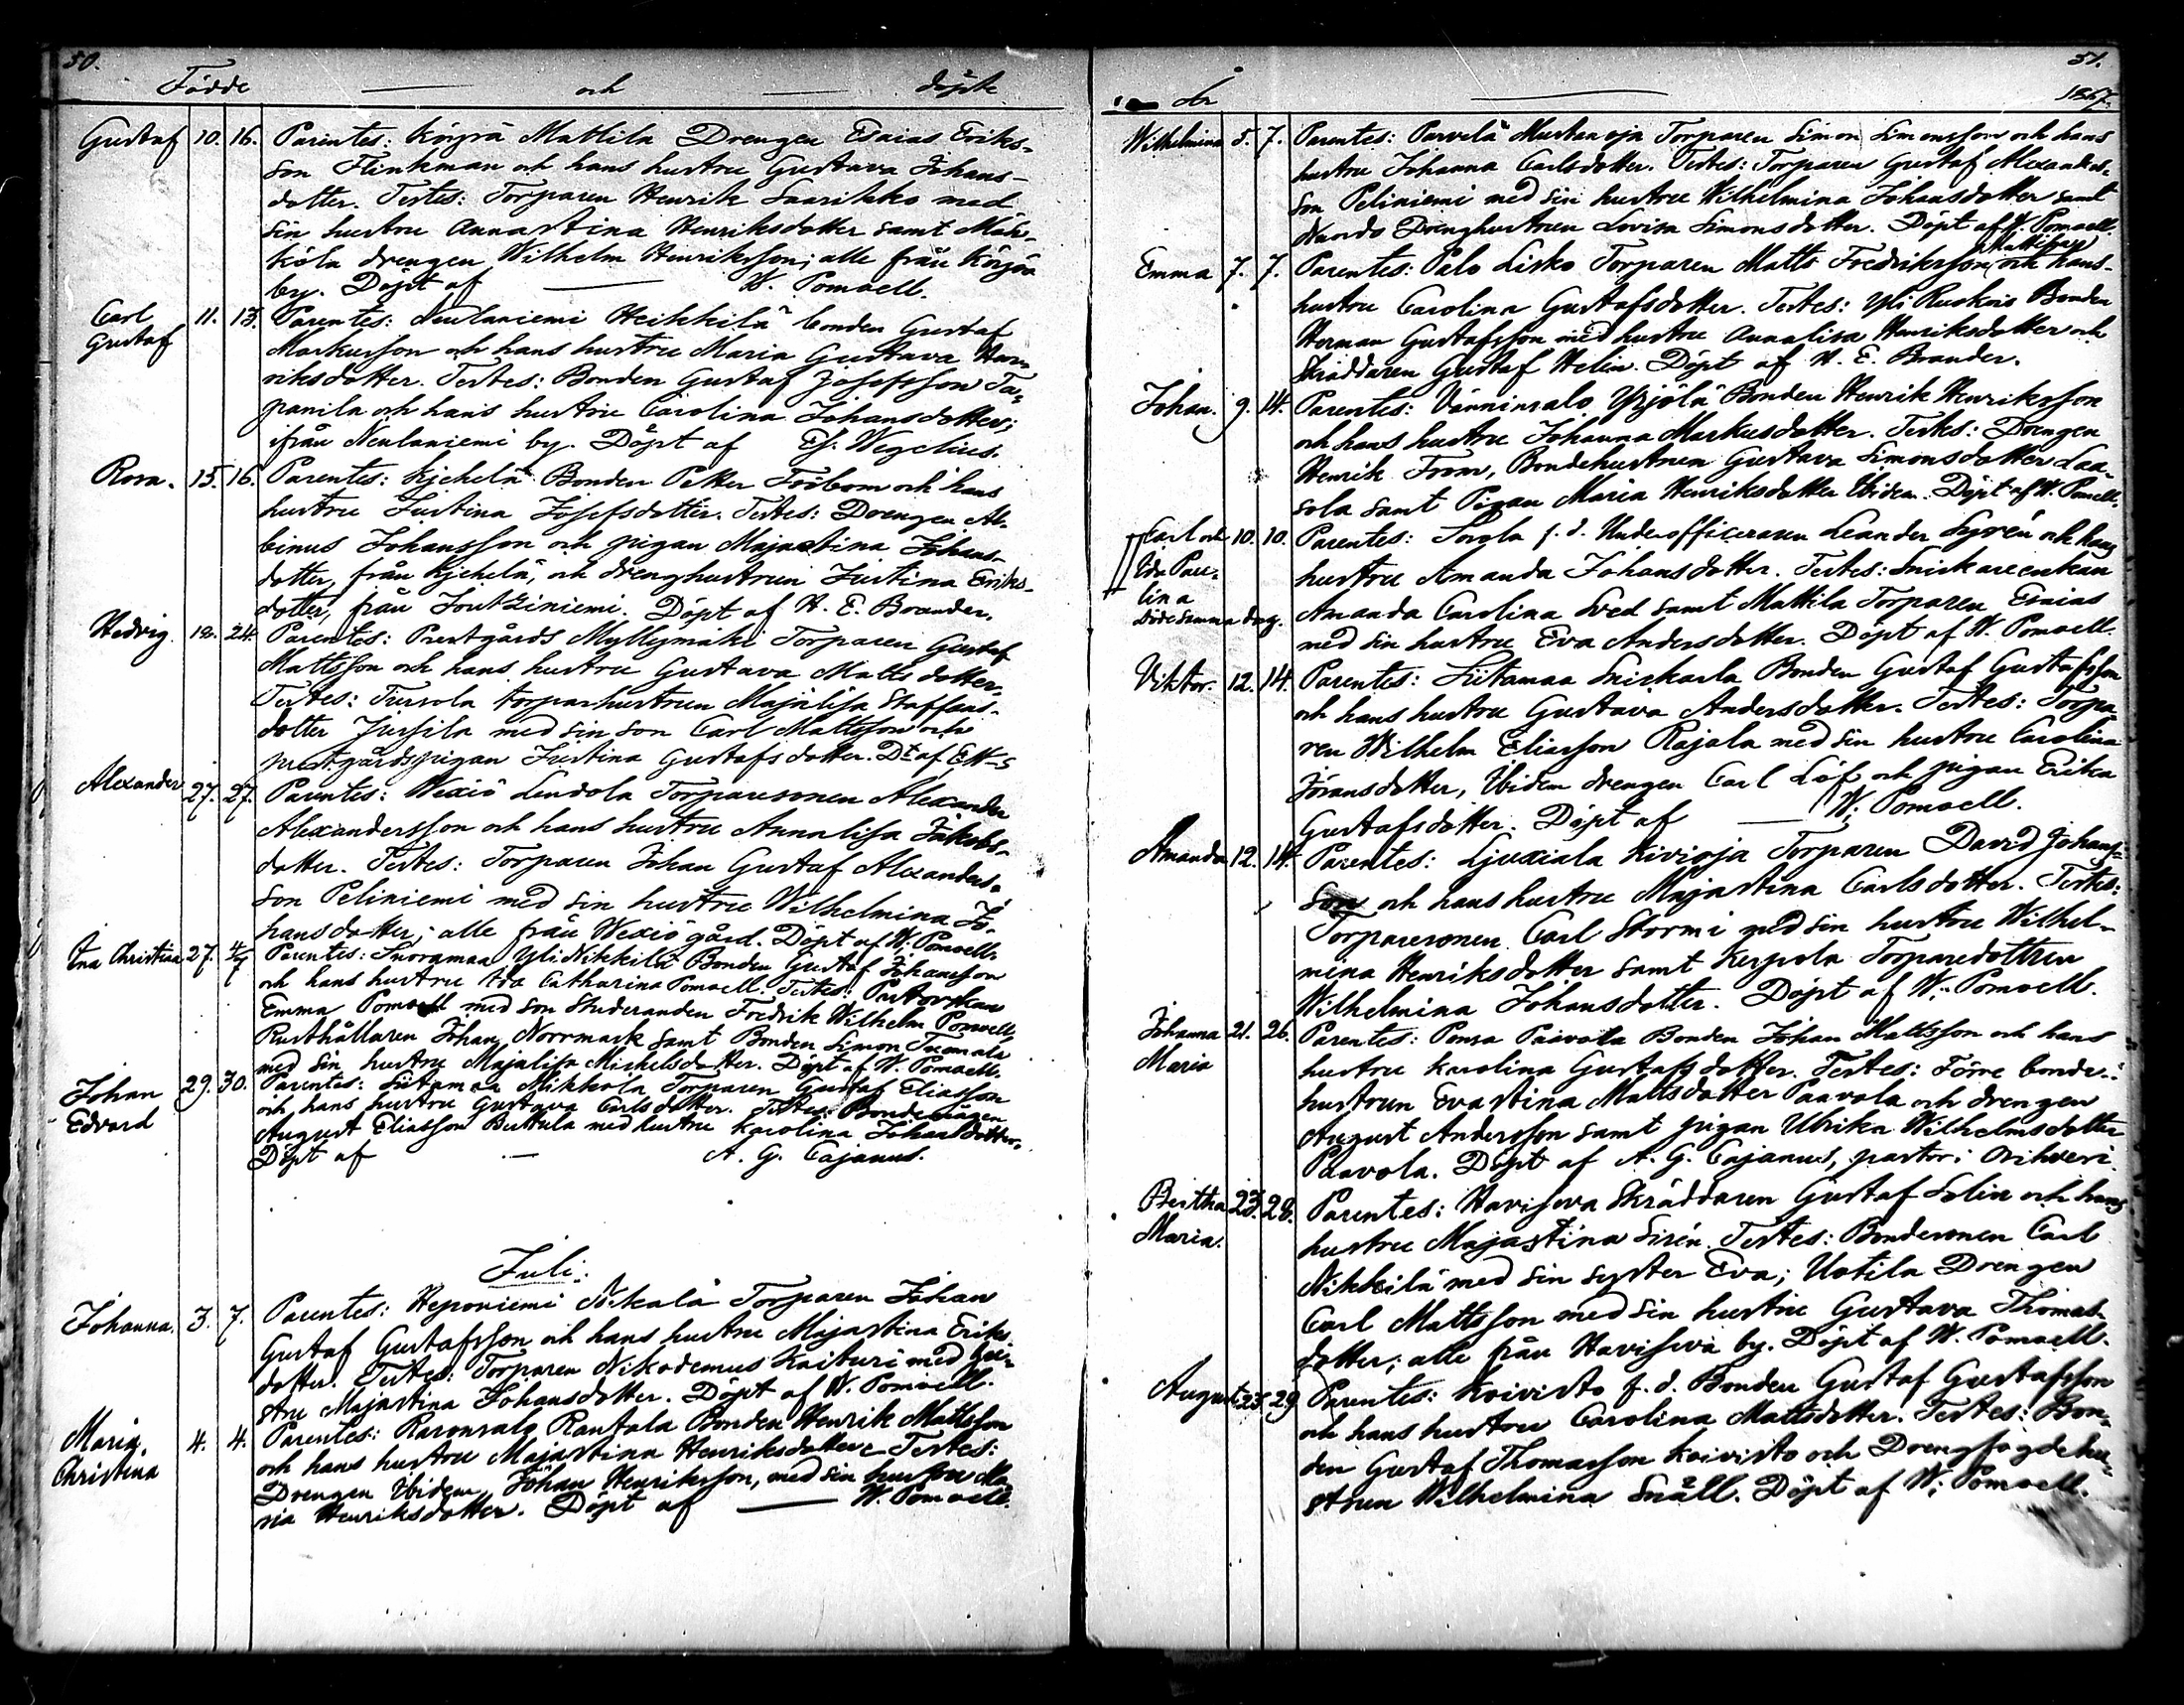 50.
Födde — och — döpte
Gustaf 10. 16. Parentes: Körjrä Mattila Drengen Esaias Eriks-
son Flinkman och hans hustru Gustava Johans-
dotter. Testes: Torparen Henrik Saarikko med
sin hustru Annastina Henriksdotter samt Mär-
köla drengen Wilhelm Henriksson; alle från
by. Döpt af — W. Pomoell.
Carl 11. 13. Parentes: Neulaniemi Heikkilä bonden Gustaf
Gustaf Markusson och hans hustru Maria Gustava Hen-
riksdotter. Testes: Bonden Gustaf Josefsson Ta-
panila och hans hustru Carolina Johansdotter;
ifrån Neulaniemi by. Döpt af Ef. Wegelius.
Rosa. 15. 16. Parentes: Kjehelä Bonden Petter Forsbom och hans
hustru Justina Josefsdotter. Testes: Drengen Al-
binus Johansson och pigan Majastina Johans-
dotter, från Kjehelä, och drenghustrun Justina Eriks-
dotter, från Joutziniemi. Döpt af H. E. Brander.
Hedvig. 18. 24. Parentes: Prestgårds Myllymäki Torparen Gustaf
Mattsson och hans hustru Gustava Matts dotter.
Testes: Tursola torparhustrun Majalisa Staffans-
dotter Jussila med sin son Carl Mattsson och
prestgårdspigan Justina Gustafsdotter. Dt af EW-s
Alexander 27. 27. Parentes: Wexiö Lendola Torparesonen Alexander
Alexandersson och hans hustru Annalisa Jakobs-
dotter. Testes: Torparen Johan Gustaf Alexanders-
son Peliniemi med sin hustru Wilhelmina Jo-
hansdotter; alle från Wexiö gård. Döpt af W. Pomoell.
Ina Christina 27. 4/7 Parentes: Suoramaa Yli Nikkilä Bonden Gustaf Johansson
och hans hustru Ida Catharina Pomoell. Testes: Pastorskan
Emma Pomoell med son Studeranden Fredrik Wilhelm Pomoell,
Rusthållaren Johan Norrmark samt Bonden Simon Tuomala
med sin hustru Majalisa Michelsdotter. Döpt af W. Pomoell.
Johan 29. 30. Parentes: Siitamaa Mikkola Torparen Gustaf Eliasson
Edvard och hans hustru Gustava Carlsdotter. Testes: Bondemågen
August Eliasson Buttula med hustru Karolina Johansdotter.
Döpt af — A. G. Cajanus.
Juli.
Johanna. 3. 7. Parentes: Heponiemi Nikala Torparen Johan
Gustaf Gustafsson och hans hustru Majastina Eriks
dotter. Testes: Torparen Nikodemus Kaituri med hu-
stru Majastina Johansdotter. Döpt af W. Pomoell.
Maria 4. 4. Parentes: Raronsalo Rantala Bonden Henrik Mattsson
Christina och hans hustru Majastina Henriksdotter. Testes:
Drengen Ibidem Johan Henriksson, med sin hustru Ma
ria Henriksdotter. Döpt af — W. Pomoell.
51.
år — 1867.
Wilhelmina 5. 7. Parentes: Parvelä Mustanoja Torparen Simon Simonsson och hans
hustru Johanna Carlsdotter. Testes: Torparen Gustaf Alexanders-
son Peliniemi med sin hustru Wilhelmina Johansdotter samt
Drenghustrun Lovisa Simonsdotter. Döpt af W. Pomoell.
Emma 7. 7. Parentes: Palo Lisko Torparen Matts Fredriksson, och hans
hustru Carolina Gustafsdotter. Testes: Yli Ruskois Bonden
Herman Gustafsson med hustru Annalisa Henriksdotter och
Skräddaren Gustaf Helin. Döpt af H. E. Brander.
Johan. 9. 14. Parentes: Vänninsalo Yrjölä Bonden Henrik Henriksson
och hans hustru Johanna Markusdotter. Testes: Drengen
Henrik From, Bondehustrun Gustava Simonsdotter Laa-
sola samt Pigan Maria Henriksdotter Ibidem. Döpt af W. Pomoell.
Carl och 10. 10. Parentes: Sorola f. d. Underofficeraren Leander Syrén och hans
Ida Pau- hustru Amanda Johansdotter. Testes: Snickareenkan
lina Amanda Carolina Sved samt Mattila Torparen Esaias
Döde samma dag. med sin hustru Eva Andersdotter. Döpt af W. Pomoell.
Viktor. 12. 14. Parentes: Siitamaa Snickarla Bonden Gustaf Gustafsson
och hans hustru Gustava Andersdotter. Testes: Torpa-
ren Wilhelm Eliasson Rajala med sin hustru Carolina
Jöransdotter, Ibidem drengen Carl Löf och pigan Erika
Gustafsdotter. Döpt af — W. Pomoell.
Amanda 12. 14. Parentes: Ljuxiala Kivioja Torparen David Johans-
son och hans hustru Majastina Carlsdotter. Testes:
Torparesonen Carl Stormi med sin hustru Wilhel-
mina Henriksdotter samt Kerpola Torparedottren
Wilhelmina Johansdotter. Döpt af W. Pomoell.
Johanna 21. 26. Parentes: Ponsa Paavola Bonden Johan Mattsson och hans
Maria hustru Karolina Gustafsdotter. Testes: Förre bonde-
hustrun Evastina Mattsdotter Paavola och drengen
August Andersson samt pigan Ulrika Wilhelmsdotter
Paavola. Döpt af A. G. Cajanus, pastor i Orihvesi.
Bertha 23. 28. Parentes: Havisova Skräddaren Gustaf Solin och hans
Maria. hustru Majastina Sirén. Testes: Bondesonen Carl
Nikkilä med sin syster Eva; Uotila Drengen
Carl Mattsson med sin hustru Gustava Thomas-
dotter; alle från Havisova by. Döpt af W. Pomoell.
August 25. 29. Parentes: Koivisto f. d. Bonden Gustaf Gustafsson
och hans hustru Carolina Mattsdotter. Testes: Bon-
den Gustaf Thomasson Koivisto och Drengfogdehu-
strun Wilhelmina Snäll. Döpt af W. Pomoell.